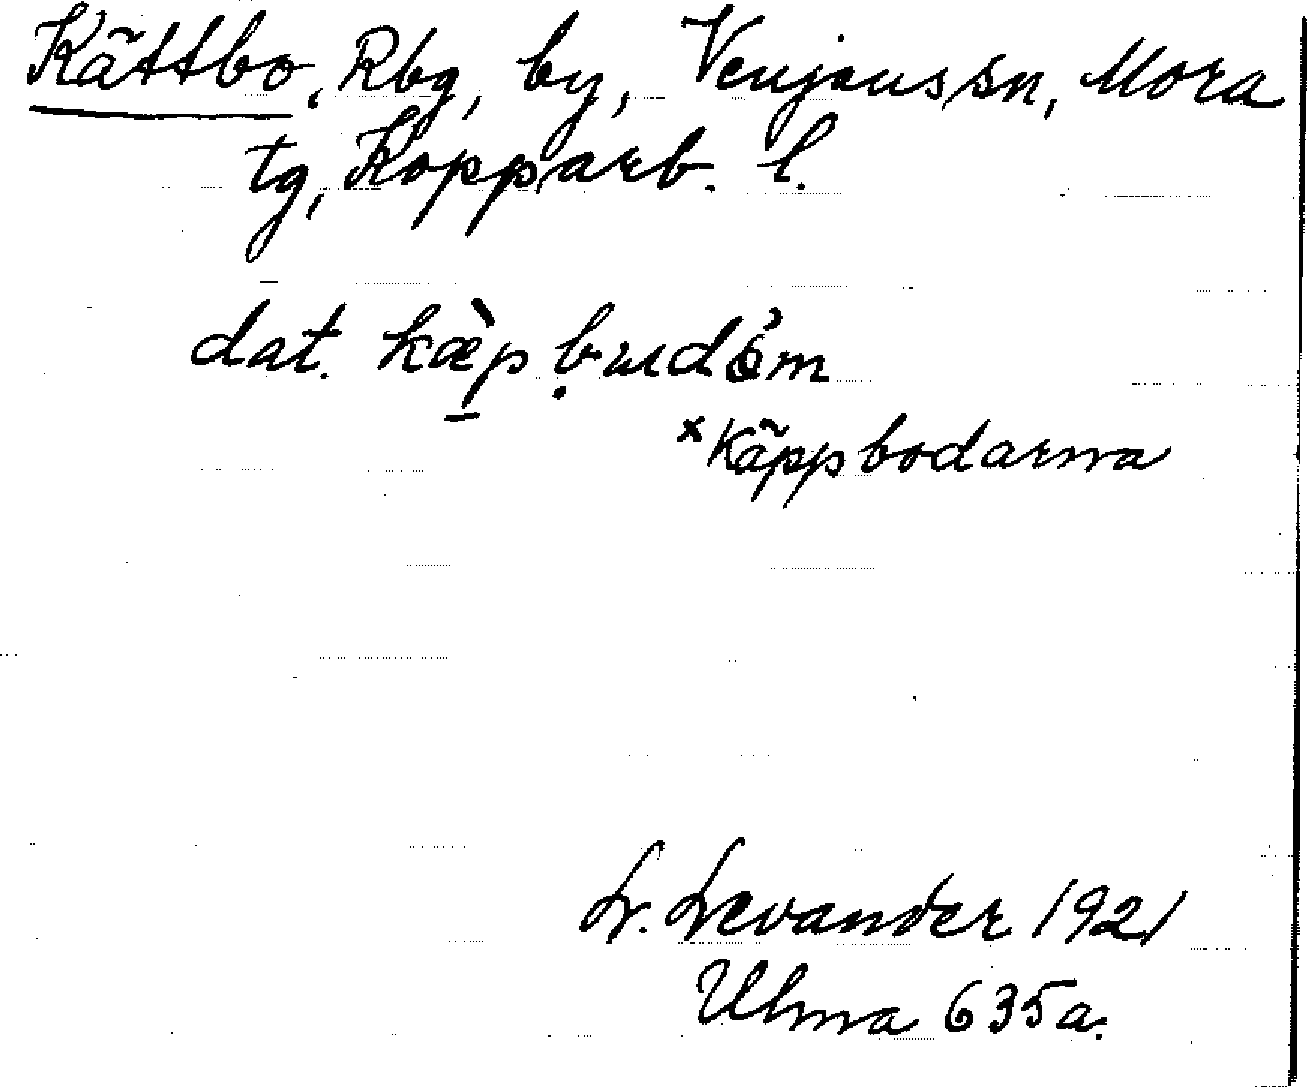 Kättbo, Rbg, by, Venjans sn, Mora
tg, Kopparb. l.
dat. kæ̀p b̤udo̓m
ˣKäppbodarna
L. Levander 1921
Ulma 635a.